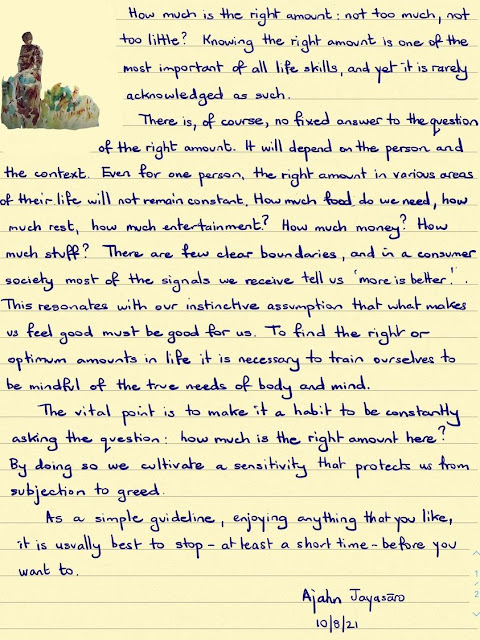 How much is the right amount: not too much, not
too little? Knowing the right amount is one of the
most important of all life skills, and yet it is rarely
acknowledged as such.
There is, of course, no fixed answer to the question
of the right amount. It will depend on the person and
the context. Even for one person, the right amount in various areas
of their life will not remain constant. How much food do we need, how
much rest, how much entertainment? How much money? How
much stuff? There are few clear boundaries, and in a consumer
society most of the signals we receive tell us 'more is better!'.
This resonates with our instinctive assumption that what makes
us feel good must be good for us. To find the right or
optimum amounts in life it is necessary to train ourselves to
be mindful of the true needs of body and mind.
The vital point is to make it a habit to be constantly
asking the question: how much is the right amount here?
By doing so we cultivate a sensitivity that protects us from
subjection to greed.
As a simple guideline, enjoying anything that you like,
it is usually best to stop - at least a short time - before you
want to.
Ajahn Jayasāro
10/8/21
1
2